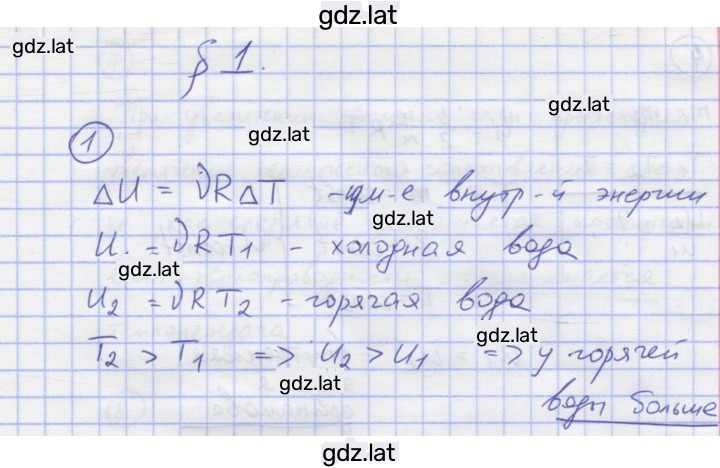 gdz.lat
gdz.lat
§ 1.
gdz.lat
1 gdz.lat
ΔU = νRΔT - изм-е внутр-й энергии
gdz.lat
U. = νRT₁ - холодная вода
gdz.lat
U₂ = νRT₂ - горячая вода
gdz.lat
T₂ > T₁ => U₂ > U₁ => у горячей
gdz.lat
воды больше
gdz.lat